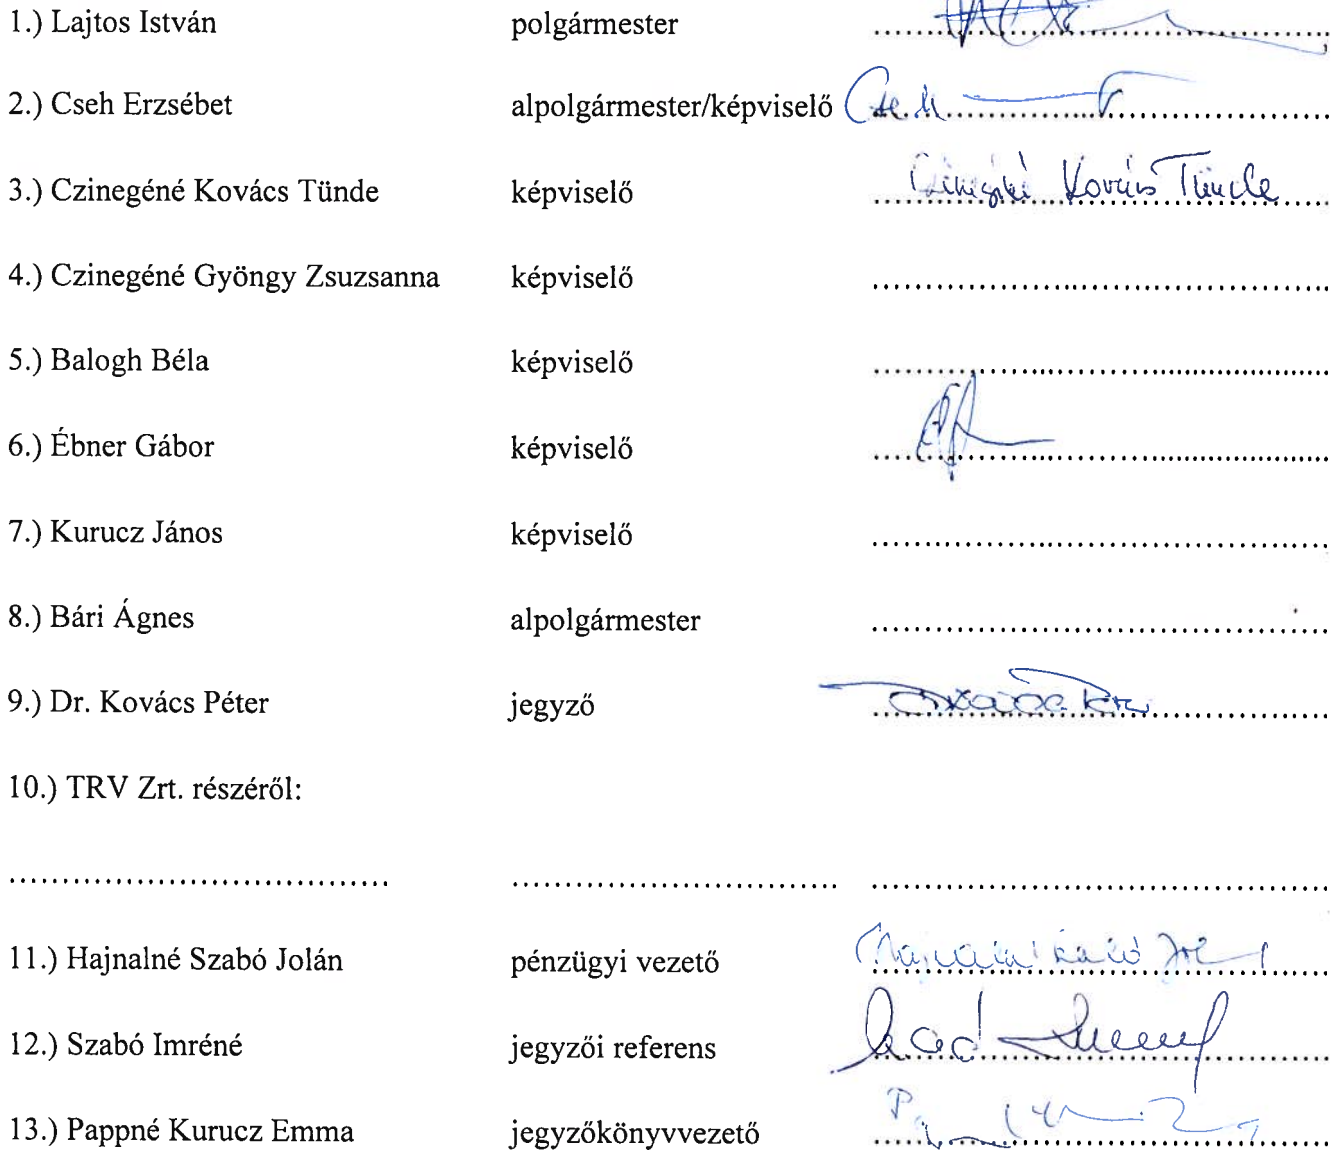 1.) Lajtos István polgármester ..........
2.) Cseh Erzsébet alpolgármester/képviselő Cseh ..........
3.) Czinegéné Kovács Tünde képviselő Czinegéné Kovács Tünde
4.) Czinegéné Gyöngy Zsuzsanna képviselő ..........
5.) Balogh Béla képviselő ..........
6.) Ébner Gábor képviselő ..........
7.) Kurucz János képviselő ..........
8.) Bári Ágnes alpolgármester ..........
9.) Dr. Kovács Péter jegyző ..........
10.) TRV Zrt. részéről:
.......... .......... ..........
11.) Hajnalné Szabó Jolán pénzügyi vezető ..........
12.) Szabó Imréné jegyzői referens ..........
13.) Pappné Kurucz Emma jegyzőkönyvvezető ..........